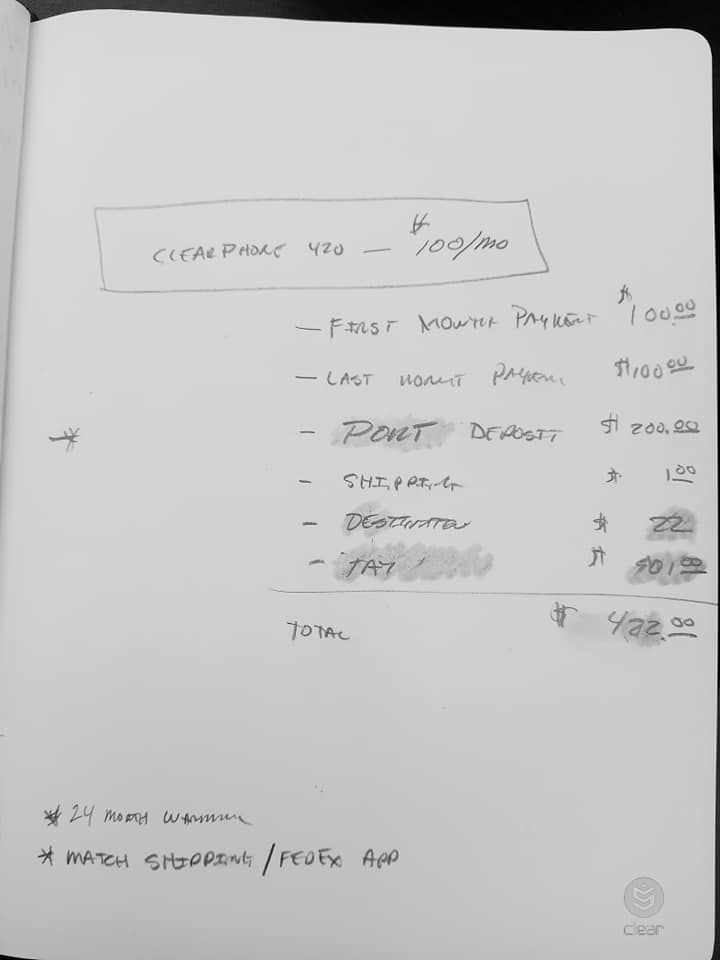 CLEARPHONE 420 — $100/MO
— FIRST MONTH PAYMENT $100.00
— LAST PAYMENT $100.00
- PORT DEPOSIT $200.00
- SHIPPING $1.00
- $22
- TAX $
TOTAL $422.00
* 24 MONTH
* MATCH SHIPPING/FEDEX APP
clear